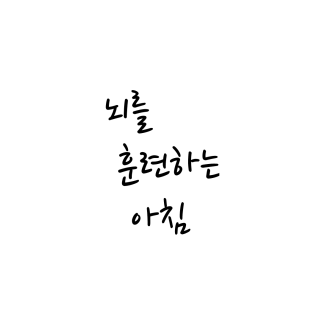 뇌를
훈련하는
아침